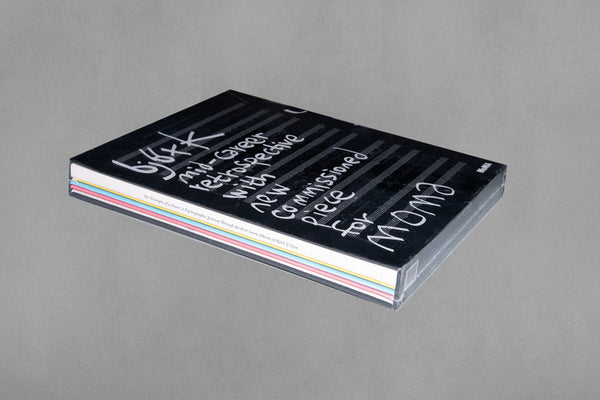 björk
mid-career
retrospective
with
new
commissioned
piece
for
moma
MoMA
The Triumphs of a Heart: A Psychographic Journey Through the First Seven Albums of Björk